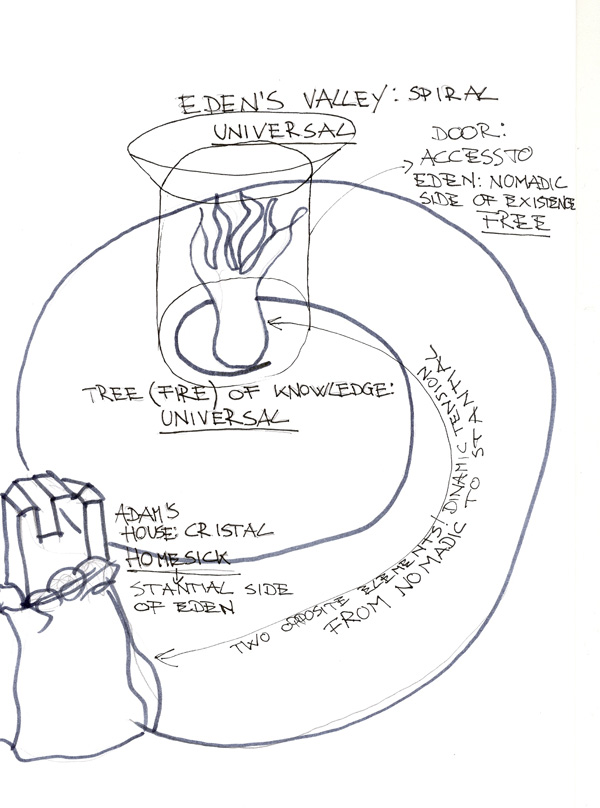 EDEN'S VALLEY: SPIRAL
UNIVERSAL
DOOR:
ACCESS TO
EDEN: NOMADIC
SIDE OF EXISTENCE
FREE
TREE (FIRE) OF KNOWLEDGE:
UNIVERSAL
ADAM'S
HOUSE: CRISTAL
HOMESICK
STANTIAL SIDE
OF EDEN
TWO OPPOSITE ELEMENTS! DINAMIC TENSION
FROM NOMADIC TO STANTIAL